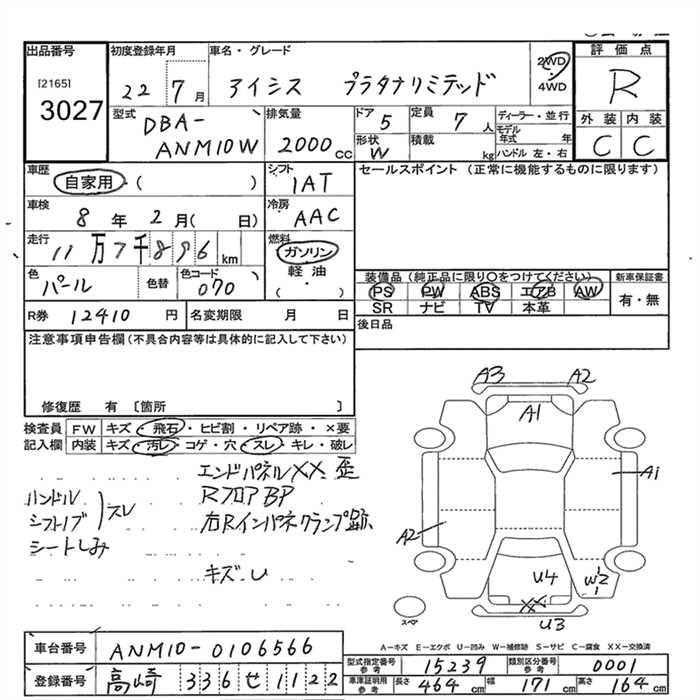 出品番号
[2165]
3027
初度登録年月
22 7月
車名・グレード
アイシス プラタナリミテッド
2WD
4WD
評価点
R
外装 内装
C C
型式
DBA-
ANM10W
排気量
2000cc
ドア
5
定員
7人
形状
W
積載
kg
ディーラー・並行
モデル年式 年
ハンドル 左・右
車歴
自家用・( )
シフト
1AT
セールスポイント(正常に機能するものに限ります)
車検
8年 2月( 日)
冷房
AAC
走行
11万7千896km
燃料
ガソリン
軽油
・
( )
色
パール
色替
色コード
070
装備品(純正品に限り〇をつけてください)
PS PW ABS エアB AW
SR ナビ TV 本革
新車保証書
有・無
R券 12410円
名変期限 月 日
後日品
注意事項申告欄(不具合内容等は具体的に記入して下さい)
修復歴 有 〔箇所 〕
検査員
記入欄
FW キズ・飛石・ヒビ割・リペア跡・×要
内装 キズ・汚レ・コゲ・穴・スレ・キレ・破レ
エンドパネルXX、歪
RフロアBP
右Rインパネクランプ跡
キズ・U
ハンドル
シフトノブ
スレ
シートしみ
A3 A2
A1
A1
A2
U4 W2
XX
U3
スペア
A-キズ E-エクボ U-凹み W-補修跡 S-サビ C-腐食 XX-交換済
車台番号 ANM10-0106566
登録番号 高崎 336 せ 1122
型式指定番号
参考
15239
類別区分番号
参考
0001
車庫証明用
参考
長さ 464cm 幅 171cm 高さ 164cm